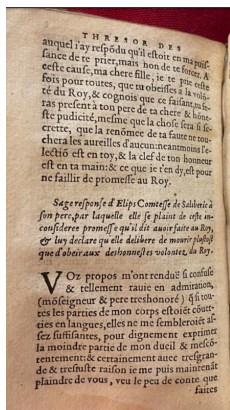 THRESOR DES
auquel i'ay respõdu qu'il estoit en ma puis-
sance de te prier, mais non de te forcer. A
ceste cause, ma chere fille, ie te prie ceste
fois pour toutes, que tu obeisses à la volõ-
té du Roy, & cognois que ce faisant, tu fe-
ras present à ton pere de ta chere & hône-
ste pudicité, mesme que la chose sera si se-
crette, que la renõmee de ta faute ne tou-
chera les aureilles d'aucun: neantmoins l'e-
lectiõ est en toy, & la clef de ton honneur
est en ta main: & ce que ie t'en dy, est pour
ne faillir de promesse au Roy.
Sage response d'Elips Comtesse de Salberic à
son pere, par laquelle elle se plaint de ceste in-
consideree promesse qu'il dit auoir faite au Roy,
& luy declare qu'elle delibere de mourir plustost
que d'obeir aux deshonnestes volontez, du Roy.
VOz propos m'ont renduë si confuse
& tellement rauie en admiration,
(mõseigneur & pere treshonoré) q̃ si tou-
tes les parties de mon corps estoiẽt cõuer-
ties en langues, elles ne me sembleroiẽt as-
sez suffisantes, pour dignement exprimer
la moindre partie de mon dueil & mescõ-
tentement: & certainement auec tresgran-
de & tresiuste raison ie me puis maintenãt
plaindre de vous, veu le peu de conte que
faites